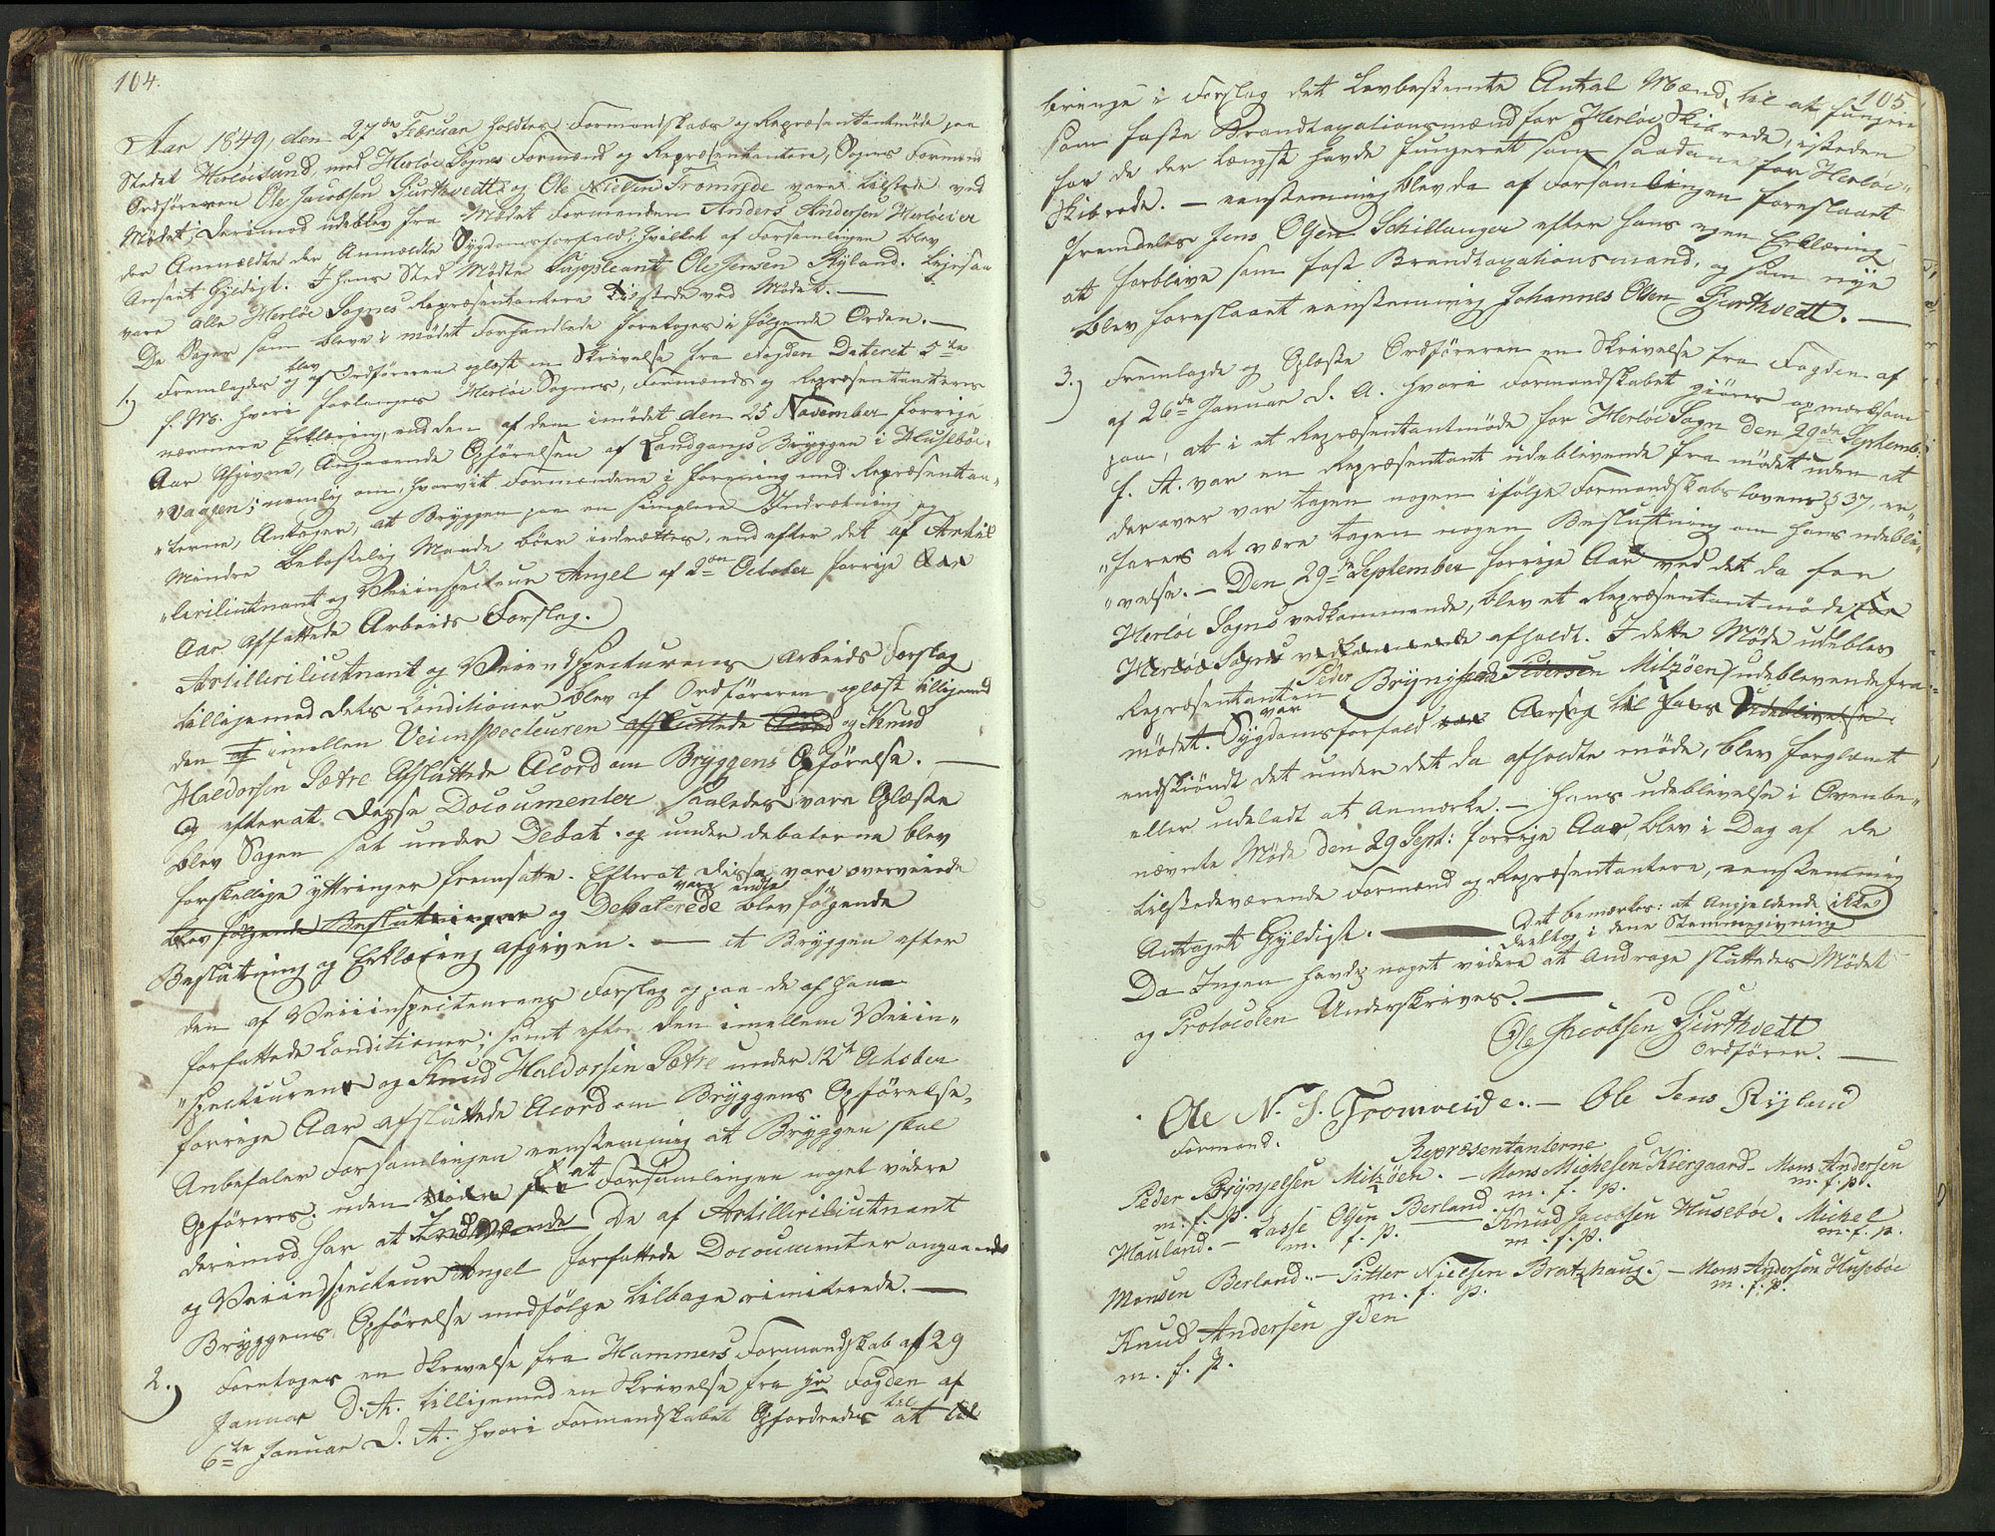 104.
Aar 1849, den 27de Februar holdtes Formandskabs og Repræsentantmöde paa
Stedet Herlöesund, med Herlöe Sogns Formænd og Repræsentantere, Sogns Formænd
Ordföreren Ole Jacobsen Gjurthvedt og Ole Nielsen Tromvjde vare tilstede ved
Mödet; Derimod udeblev fra Mödet Formanden Anders Andersen Herlöeier
der Anmældte Sygdomsforfald; hvilket af Forsamlingen blev
Anseet Gyldigt. I hans Sted Mödte Suppleant Ole Jensen Ryland. Ligesaa
vare alle Herlöe Sognes Repræsentantere tilstede ved Mödet. —
De Sager som bleve i mödet Forhandlede foretoges i fölgende Orden. —
1.) Fremlagdes og blev af Ordföreren oplæst en Skrivelse fra Fogden Dateret 5te
f. M. hvori forlanges Herlöe Sognes, Formænds og Repræsentanters
nærmere Erklæring, end den af dem i mödet den 25 November forrige
Aar Afgivne, Angaaende Opförelsen af Landgangs Bryggen i Huseböe-
"vaagen; nemlig om, hvorvit Formændene i Forening med Repræsentan-
"terne, Antager, at Bryggen paa en simplere Indretning og
Mindre Bekostelig Maade bör indrettes, end efter det af Artil
"leriliutnant og Veiinspecteur Angel af 2den October forrige Aar
Aar Affattede Arbeids Forslag.
Artilleriliutnant og Veiinspecteurens Arbeids Forslag
tilligemed dets Conditioner blev af Ordföreren oplæst tilligemed
den af imellem Veiinspecteuren afsluttede Acord og Knud
Haldorsen Sætre Afsluttede Acord om Bryggens Opförelse. —
Og efterat disse Documenter saaledes vare Oplæste
blev Sagen sat under Debat og under debaterne blev
forskellige yttringer fremsatte. Efterat disse vare overveiede
blev fölgende Beslutninger og Debaterede vare endte blev fölgende
Beslutning og Erklæring afgiven. — at Bryggen efter
den af Veiinspecteurens Forslag og paa de af ham
forfattede Conditioner; samt efter den imellem Veiin-
"specteuren og Knud Haldorsen Sætre under 12te October
forrige Aar afsluttede Acord om Bryggens Opförelse,
Anbefaler Forsamlingen eenstemmig at Bryggen skal
Opföres; uden at Forsamlingen noget videre
derimod har at Indvende De af Artilleriliutnant
og Veiinspecteur Angel forfattede Documenter angaaende
Bryggens Opförelse medfölge tilbage remiterede. —
2.) Foretoges en Skrivelse fra Hammers Formandskab af 29
Januar D. A. tilligemed en Skrivelse fra Hr Fogden af
6te Januar D. A. hvori Formandskabet Opfordredes til at
105
bringe i Forslag det Lovbestemte Antal Mænd, til at fungere
som faste Brandtaxationsmænd for Herlöe Skibrede, isteden
for de der længst havde fungeret som saadanne for Herlöe-
Skibrede. — eenstemmig blev da af Forsamlingen foreslaaet
fremdeles Jens Olsen Schillanger efter hans egen Erklæring
at forblive som fast Brandtaxationsmand, og som nye
blev foreslaaet eenstemmig Johannes Olsen Gjurthvedt. —
3.) Fremlagde og Oplæste Ordföreren en Skrivelse fra Fogden af
af 26de Januar d. A. hvori Formandskabet gjöres opmærksom
paa, at i et Repræsentantmöde for Herlöe Sogn den 29de Septemb.
f. A. var en Repræsentant udeblivende fra mödet uden at
derover var tagen nogen ifölge Formandskabslovens § 37, er-
"fares at være tagen nogen Beslutning om hans udebli-
"velse. — Den 29de September forrige Aar ved det da for
Herlöe Sogns vedkommende, blev et Repræsentantmöde for
Herlöe Sogns vedkommende afholdt. I dette Möde udeblev
Repræsentanten Peder Brynjelsen Pedersen Milzöen, udeblevende fra
mödet. Sygdomsforfald var Aarsag til hans Udeblivelse
endskiöndt det under det da afholdte möde, blev forglemt
eller udeladt at Anmærke. — Hans udeblivelse i Ovenbe-
nævnte Möde den 29 Sept: forrige Aar, blev i Dag af de
tilstedeværende Formænd og Repræsentantere, eenstemmig
Antaget Gyldigt. — Det bemærkes: at Angjeldende ikke
deeltog i dene Stemmegivning
Da Ingen havde noget videre at Andrage sluttedes Mödet
og Protocolen Underskrives. —
Ole Jacobsen Gjurthvedt
Ordförer. —
Ole N. S. Tromveide. — Ole Jens Rÿland
Formænd.
Repræsentanterne
Peder Brÿnjelsen Milzöen. — Mons Michelsen Kiergaard — Mons Andersen
m. f. P. m. f. P. m. f. P.
Hauland. — Lasse Olsen Berland. — Knud Jacobsen Huseböe. Michel
m. f. P. m. f. P. m. f. P.
Monsen Berland. — Petter Nielsen Bratzhaug. — Mons Andersen Huseböe
m. f. P. m. f. P.
Knud Andersen Jden
m. f. P.